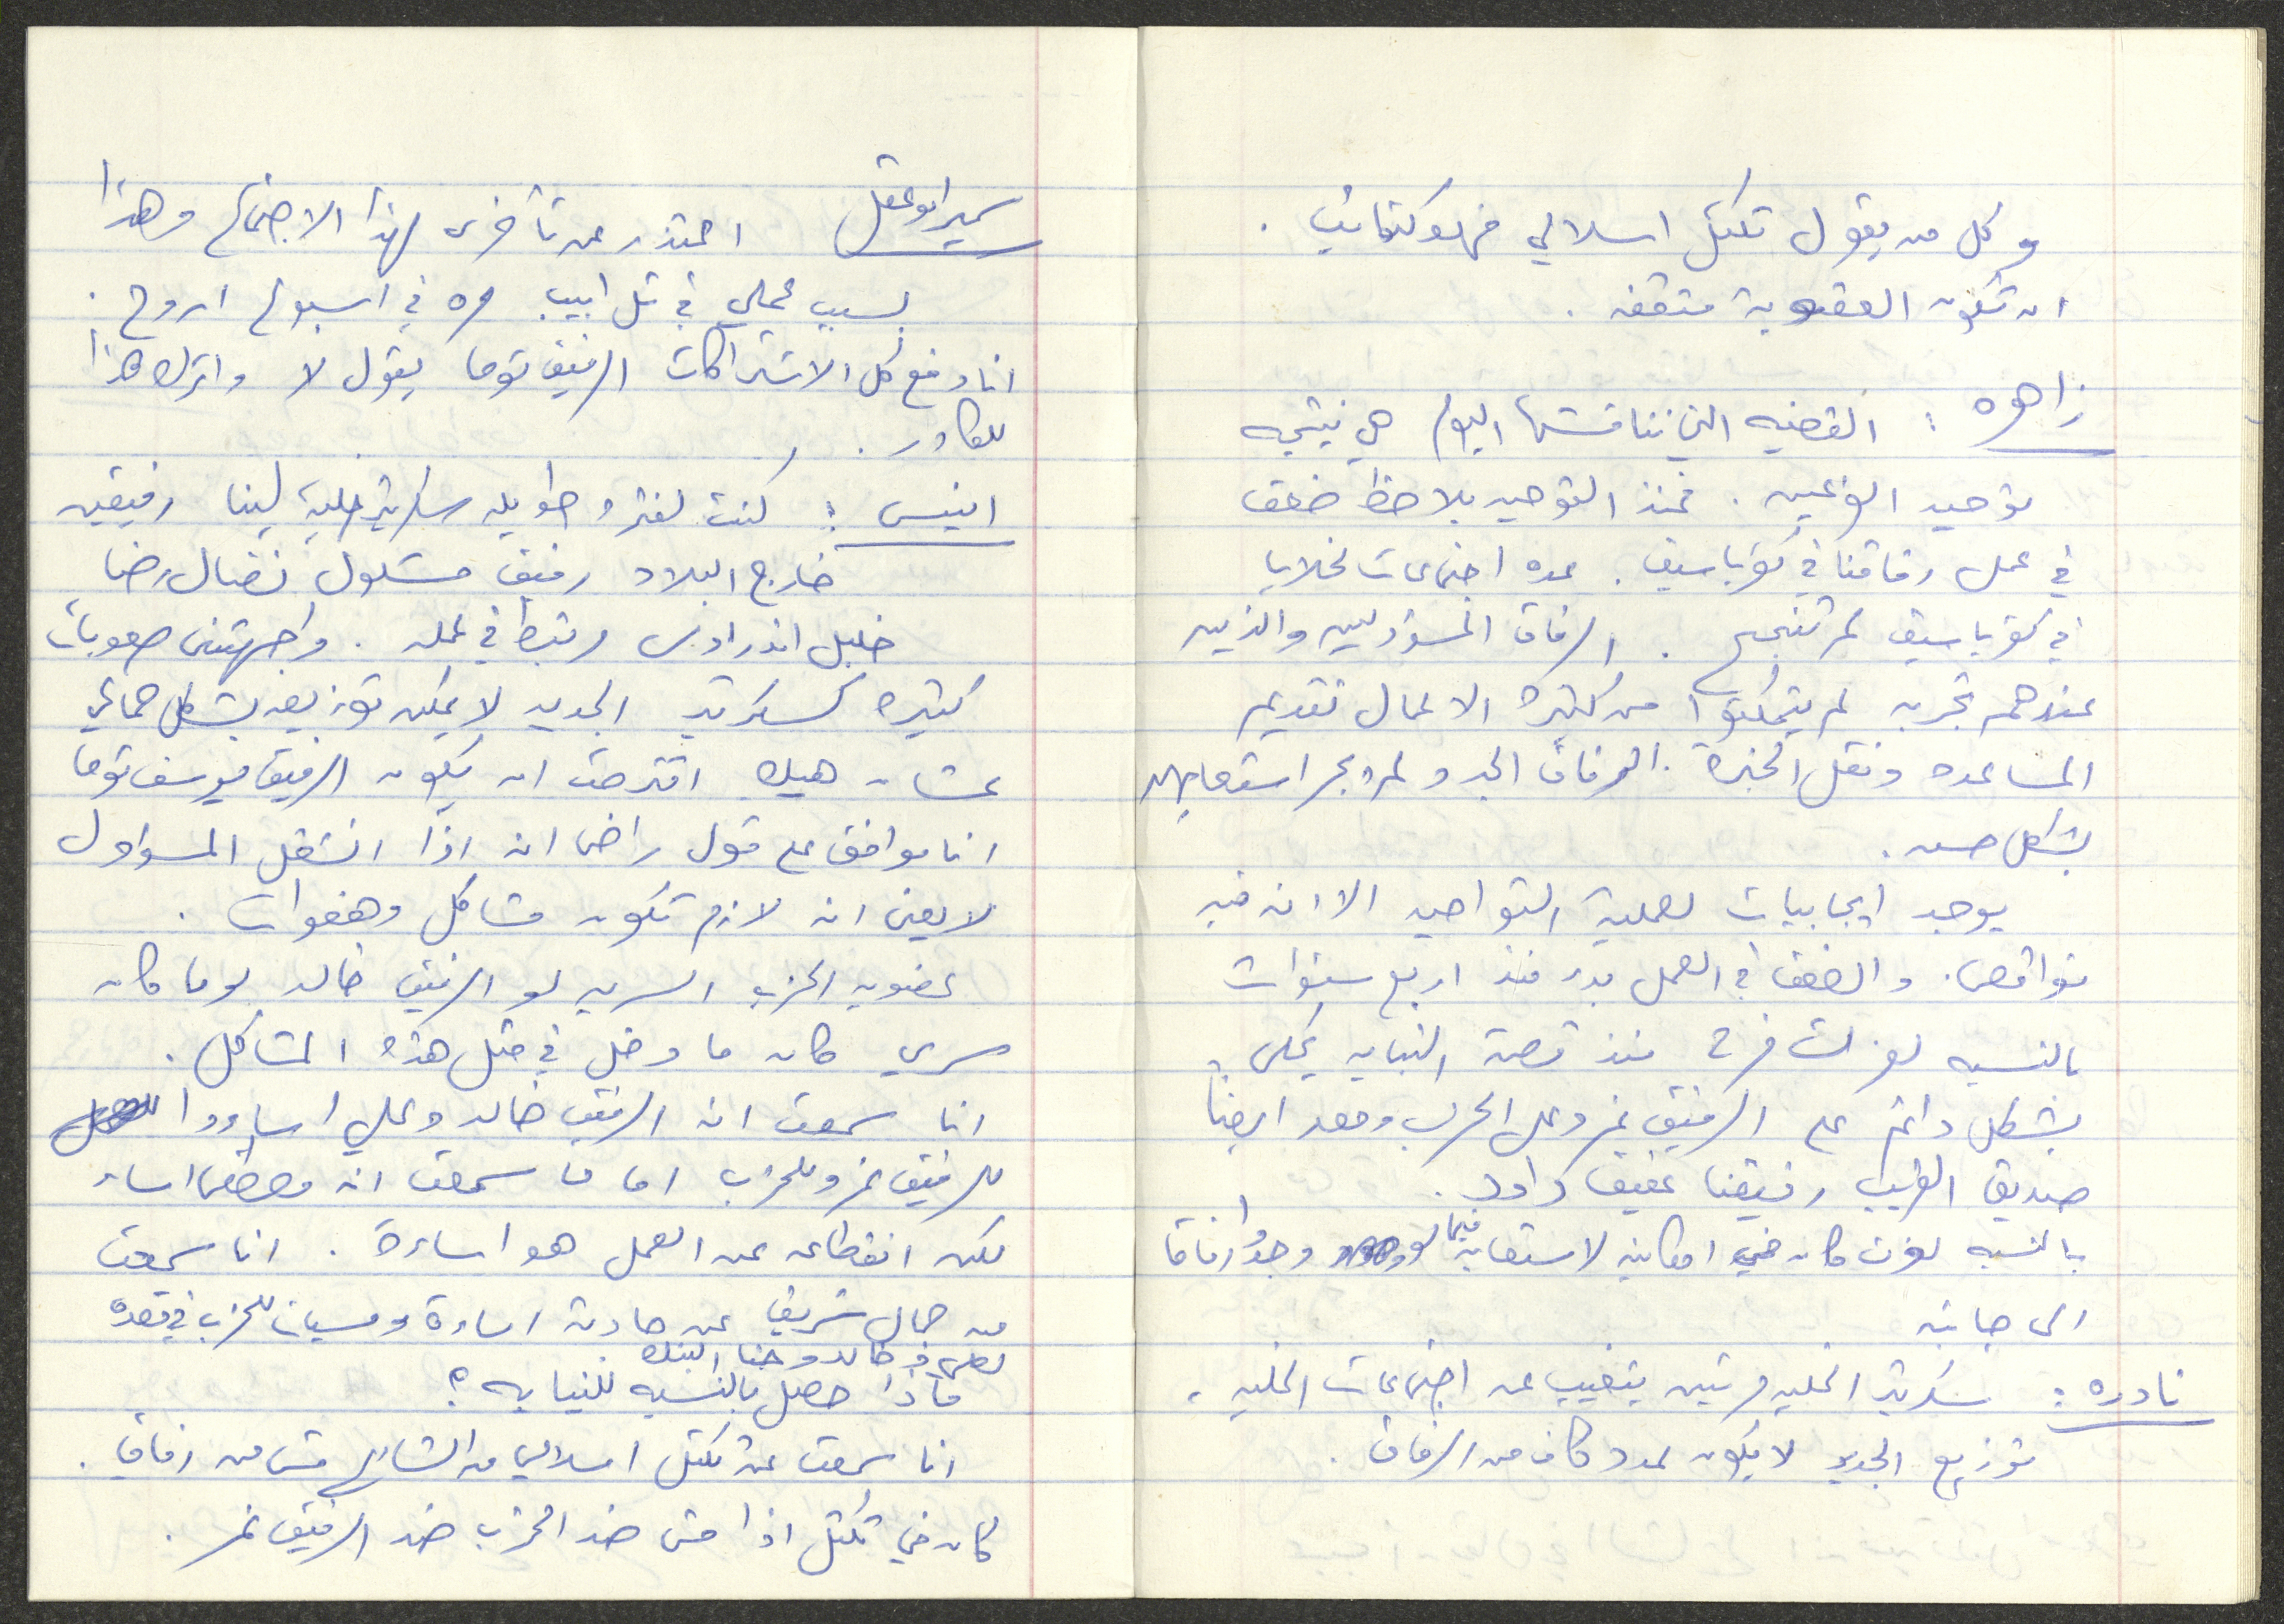 وكل من يقول تكتل اسلامي فهو كتائب .
ان تكون العقوبة متفقه .
زاهره : القضيه التي نناقشها اليوم هي نتيجه
توحيد الفرعين . فمنذ التوحيد يلاحظ ضعف
في عمل رفاقنا في كفر ياسيف . عده اجتماعات لخلايا
في كفر ياسيف لم تنجح . الرفاق المسؤولين والذين
عندهم تجربه لم يتمكنوا من كثرة الاعمال تقديم
المساعده ونقل الخبرة . الرفاق الجدد لم يجر استيعابهم
بشكل حسن .
يوجد ايجابيات لعملية التواحيد الا انه فيه
نواقص . والضعف في العمل بدء منذ اربع سنوات
بالنسبه لعزات فرح منذ قصة النيابه يحكي
بشكل دائم على الرفيق نمر وعلى الحزب ومعه ايضا
صديق القريب رفيقنا عفيف داود .
بالنسبه لعزت كان في امكانيه لاستعابه فيما لو وجدوا رفاقا
الى جانبه
نادره : سكرتير الخليه مرتين يتغيب عن اجتماعات الخليه .
توزيع الجديد لا يكون بعدد كاف من الرفاق .
سمير ابو عقل اعتذر عن تأخري لهذا الاجتماع وهذا
بسبب عملي في تل ابيب مره في اسبوع اروح .
انا دفع كل الاشتراكات الرفيق توما يقول لا واترك هذا
للكادر .
انيس : كنت لفتره طويله سكرتير خلية لينا رفيقين
خارج البلاد رفيق مشلول نضال رضا
خليل اندراوس مرتبط في عمله . واجهتني صعوبات
كثيره كسكرتير الجديد لا يمكن توزيعه بشكل جماعي
عشان هيك اقترحت ان يكون الرفيق يوسف توما
انا موافق على قول راضي انه اذا انشغل المسؤول
لا يعني انه لازم تكون مشاكل وهفوات .
عضويه الحزب السريه لو الرفيق خالد لو ما كان
سري كان ما دخل في مثل هذه المشاكل .
انا سمعت انه الرفيق خالد وعلي اساءووا
للرفيق نمر وللحزب اما ما سمعت انه مصطفى اساء
لكن انقطاعه عن العمل هو اساءة . انا سمعت
من جمال شريف عن حادثة اساءة ومسبات للحزب في قعده
لعلي وخالد وحنا البنك
ماذا حصل بالنسبه للنيابه ؟
انا سمعت عن تكتل اسلامي من الشارع مش من رفاق .
كان في تكتل اذا مش ضد الحزب ضد الرفيق نمر .